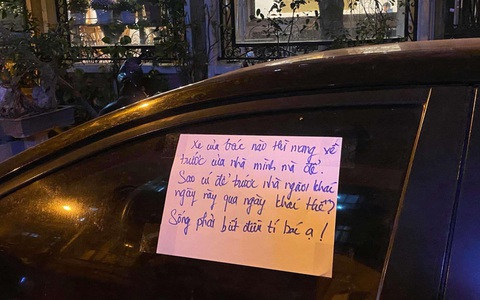 Xe của bác nào thì mong về
trước cửa nhà mình mà để.
Sao cứ để trước nhà người khác
ngày này qua ngày khác thế?
Sống phải biết điều tí bác ạ!